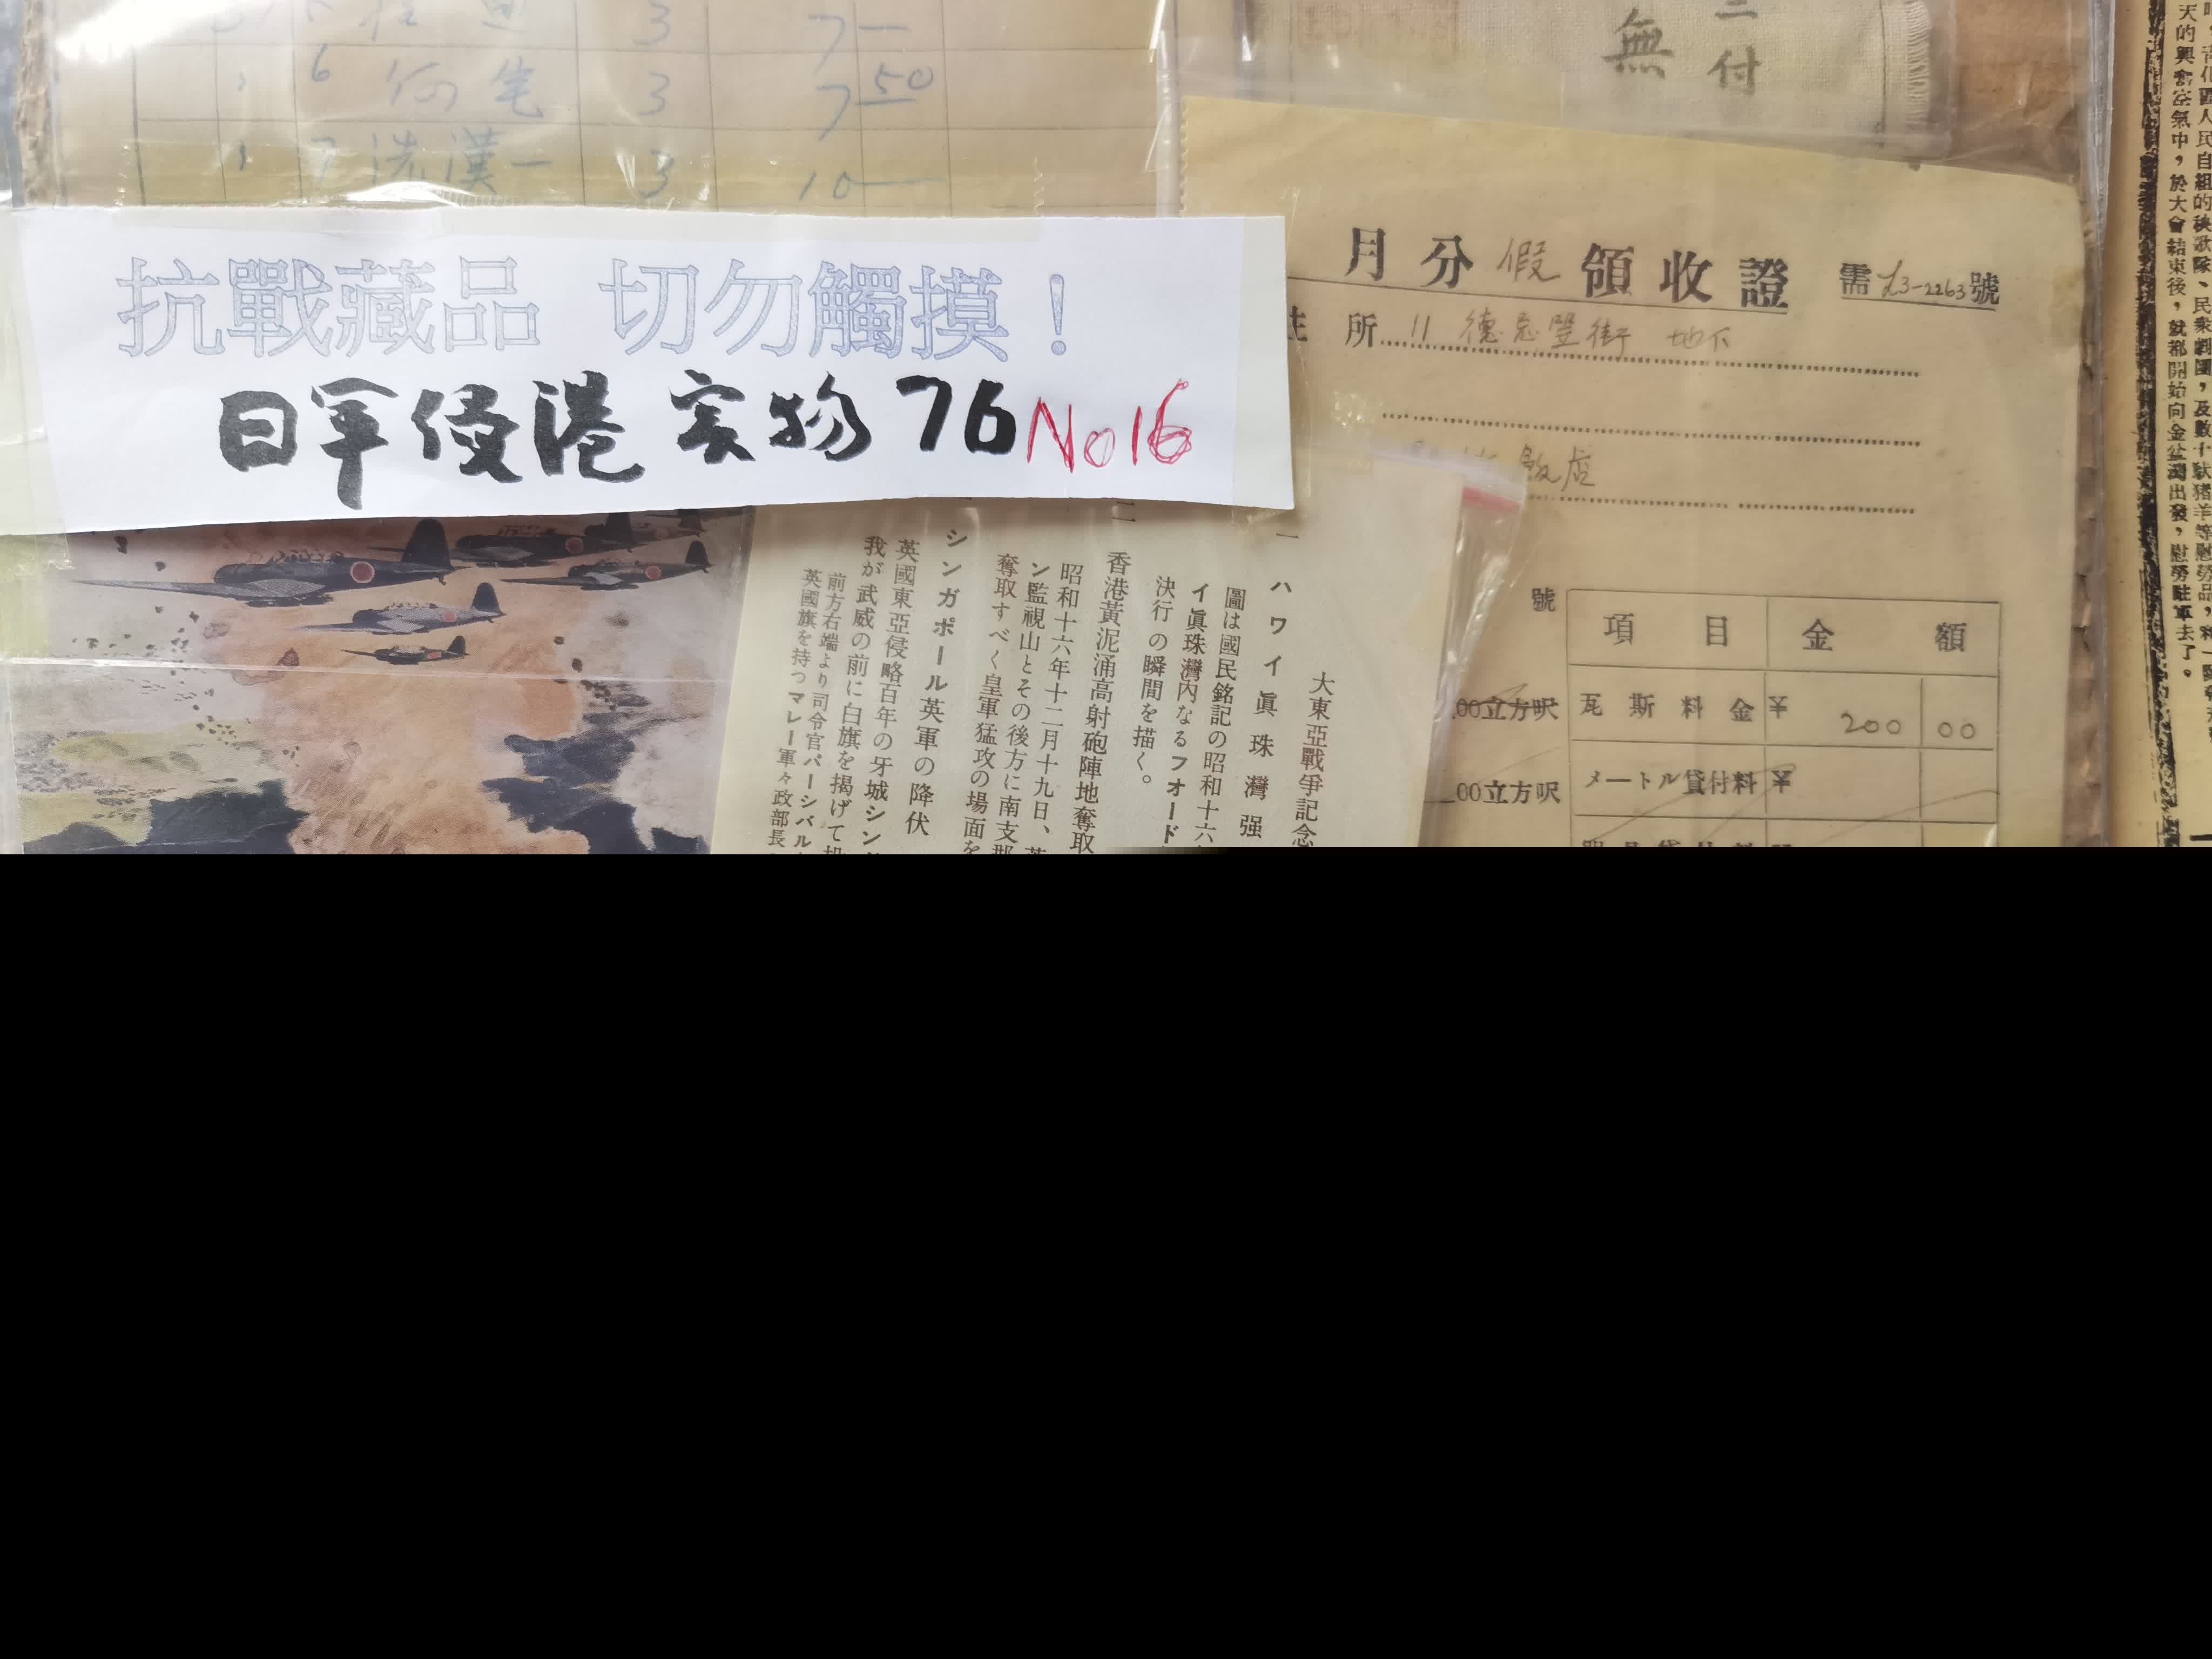 3 7—
6 何 笔 3 7 50
7 冼 漢 一 3 10—
無
二付
抗戰藏品 切勿觸摸！
日軍侵港实物76 No16
月分假領收證 需 13-2263號
所 11 德忌笠街 地下
飯店
號
項目 金額
00立方呎 瓦斯料金 ¥ 200 00
00立方呎 メートル貸付料 ¥
大東亞戰爭記念
一 ハワイ眞珠灣强
圖は國民銘記の昭和十六
イ眞珠灣內なるフォード
決行の瞬間を描く。
二 香港黃泥涌高射砲陣地奪取
昭和十六年十二月十九日、英
ン監視山とその後方に南支
奪取すべく皇軍猛攻の場面を
シンガポール英軍の降伏
英國東亞侵略百年の牙城シン
我が武威の前に白旗を揭げて
前方右端より司令官パーシバル
英國旗を持つマレー軍々政部長
人民自組的秧歌隊、民衆劇團，及數十馱猪羊等慰勞品，
天的興奮空氣中，於大會結束後，就都開始向金盆灣出發，慰勞駐軍去了。